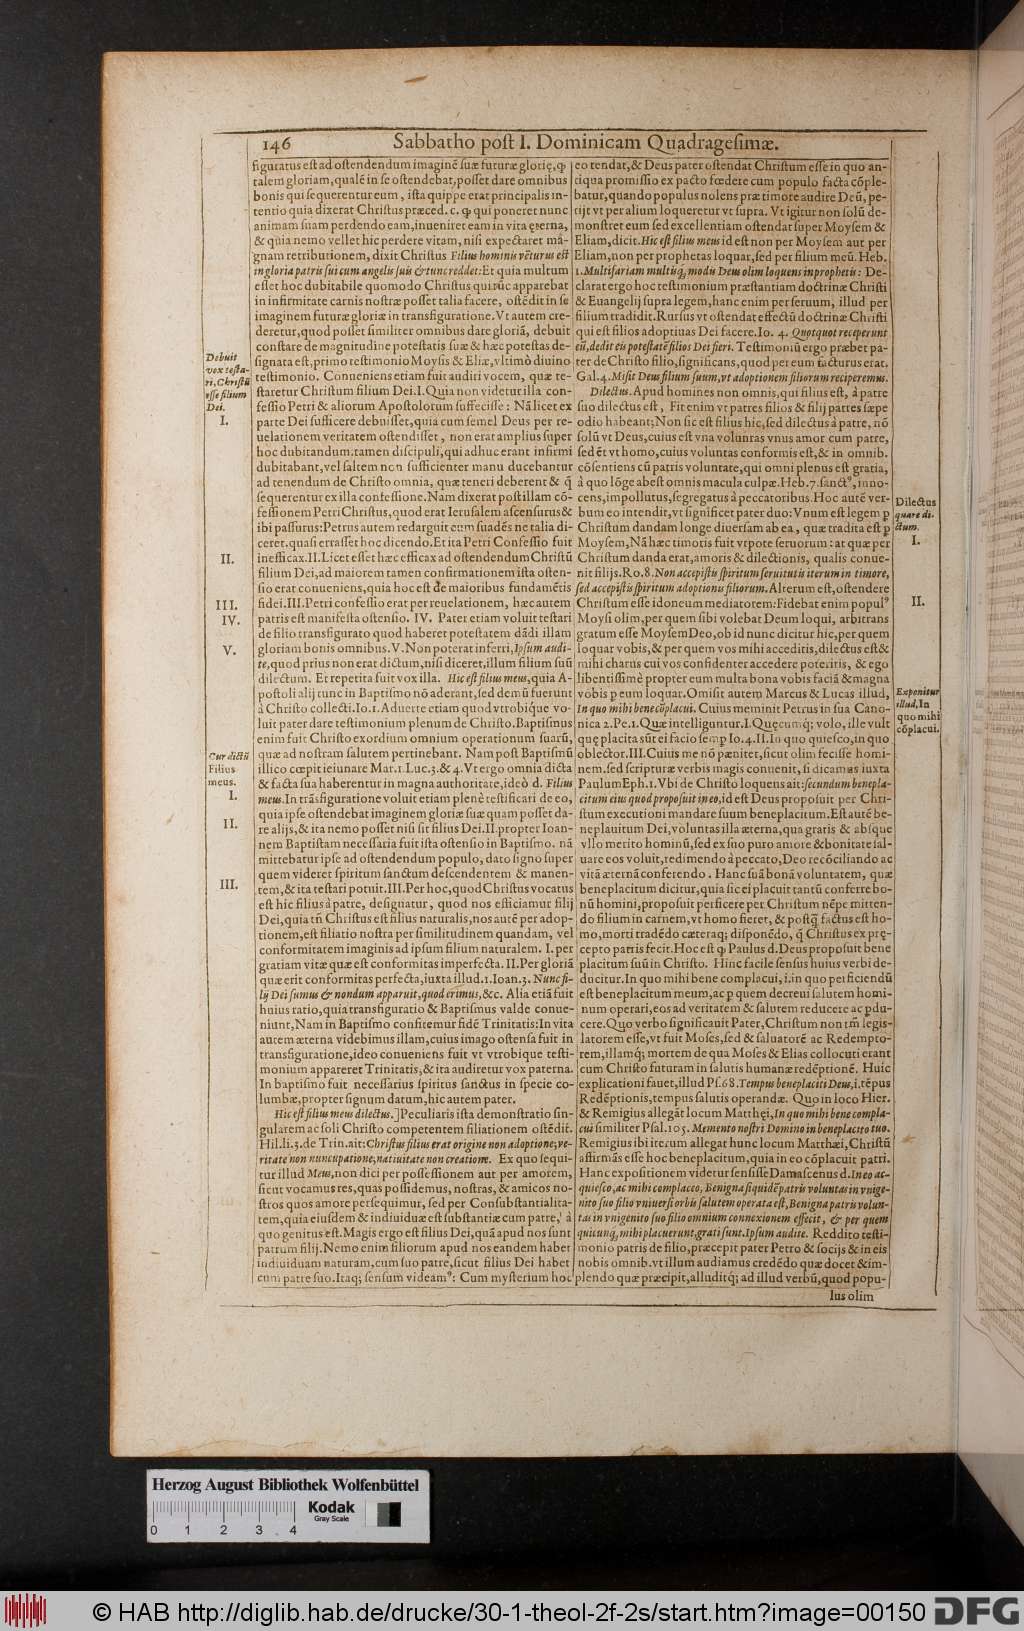 146 Sabbatho post I. Dominicam Quadragesimæ.
figuratus est ad ostendendum imaginē suæ futuræ glorię, ꝙ
talem gloriam, qualē in se ostendebat, posset dare omnibus
bonis qui sequerentur eum, ista quippe erat principalis in-
tentio quia dixerat Christus præced. c. ꝙ qui poneret nunc
animam suam perdendo eam, inueniret eam in vita ęterna,
& quia nemo vellet hic perdere vitam, nisi expectaret mā-
gnam retributionem, dixit Christus Filius hominis vēturus est
in gloria patris sui cum angelis suis & tunc reddet: Et quia multum
esset hoc dubitabile quomodo Christus qui tūc apparebat
in infirmitate carnis nostræ posset talia facere, ostēdit in se
imaginem futuræ gloriæ in transfiguratione. Vt autem cre-
deretur, quod posset similiter omnibus dare gloriā, debuit
constare de magnitudine potestatis suæ & hæc potestas de-
signata est, primo testimonio Moysis & Eliæ, vltimò diuino
testimonio. Conueniens etiam fuit audiri vocem, quæ te-
staretur Christum filium Dei. I. Quia non videtur illa con-
fessio Petri & aliorum Apostolorum suffecisse: Nā licet ex
parte Dei sufficere debuisset, quia cum semel Deus per re-
uelationem veritatem ostendisset, non erat amplius super
hoc dubitandum. tamen discipuli, qui adhuc erant infirmi
dubitabant, vel saltem non sufficienter manu ducebantur
ad tenendum de Christo omnia, quæ teneri deberent & q̄
sequerentur ex illa confessione. Nam dixerat post illam cō-
fessionem Petri Christus, quod erat Ierusalem ascensurus &
ibi passurus: Petrus autem redarguit eum suadēs ne talia di-
ceret. quasi errasset hoc dicendo. Et ita Petri Confessio fuit
inefficax. II. Licet esset hæc efficax ad ostendendum Christū
filium Dei, ad maiorem tamen confirmationem ista osten-
sio erat conueniens, quia hoc est de maioribus fundamētis
fidei. III. Petri confessio erat per reuelationem, hæc autem
patris est manifesta ostensio. IV. Pater etiam voluit testari
de filio transfigurato quod haberet potestatem dādi illam
gloriam bonis omnibus. V. Non poterat inferri, Ipsum audi-
te, quod prius non erat dictum, nisi diceret, illum filium suū
dilectum. Et repetita fuit vox illa. Hic est filius meus, quia A-
postoli alij tunc in Baptismo nō aderant, sed demū fuerunt
à Christo collecti. Io. 1. Aduerte etiam quod vtrobiq́ue vo-
luit pater dare testimonium plenum de Christo. Baptismus
enim fuit Christo exordium omnium operationum suarū,
quæ ad nostram salutem pertinebant. Nam post Baptismū
illico cœpit ieiunare Mat. 1. Luc. 3. & 4. Vt ergo omnia dicta
& facta sua haberentur in magna authoritate, ideò d. Filius
meus. In trāsfiguratione voluit etiam plenè testificari de eo,
quia ipse ostendebat imaginem gloriæ suæ quam posset da-
re alijs, & ita nemo posset nisi sit filius Dei. II. propter Ioan-
nem Baptistam necessaria fuit ista ostensio in Baptismo. nā
mittebatur ipse ad ostendendum populo, dato signo super
quem videret spiritum sanctum descendentem & manen-
tem, & ita testari potuit. III. Per hoc, quod Christus vocatus
est hic filius à patre, designatur, quod nos efficiamur filij
Dei, quia tñ Christus est filius naturalis, nos autē per adop-
tionem, est filiatio nostra per similitudinem quandam, vel
conformitatem imaginis ad ipsum filium naturalem. I. per
gratiam vitæ quæ est conformitas imperfecta. II. Per gloriā
quæ erit conformitas perfecta, iuxta illud. 1. Ioan. 3. Nunc fi-
lij Dei sumus & nondum apparuit, quod erimus, &c. Alia etiā fuit
huius ratio, quia transfiguratio & Baptismus valde conue-
niunt, Nam in Baptismo confitemur fidē Trinitatis: In vita
autem æterna videbimus illam, cuius imago ostensa fuit in
transfiguratione, ideo conueniens fuit vt vtrobique testi-
monium appareret Trinitatis, & ita audiretur vox paterna.
In baptismo fuit necessarius spiritus sanctus in specie co-
lumbæ, propter signum datum, hic autem pater.
Hic est filius meus dilectus.] Peculiaris ista demonstratio sin-
gularem ac soli Christo competentem filiationem ostēdit.
Hil. li. 3. de Trin. ait: Christus filius erat origine non adoptione, ve-
ritate non nuncupatione, natiuitate non creatione. Ex quo sequi-
tur illud Meus, non dici per possessionem aut per amorem,
sicut vocamus res, quas possidemus, nostras, & amicos no-
stros quos amore persequimur, sed per Consubstantialita-
tem, quia eiusdem & indiuiduæ est substantiæ cum patre, à
quo genitus est. Magis ergo est filius Dei, quā apud nos sunt
patrum filij. Nemo enim filiorum apud nos eandem habet
indiuiduam naturam, cum suo patre, sicut filius Dei habet
cum patre suo. Itaq; sensum videamꝰ: Cum mysterium hoc
eo tendat, & Deus pater ostendat Christum esse in quo an-
tiqua promissio ex pacto fœdere cum populo facta cōple-
batur, quando populus nolens præ timore audire Deū, pe-
tijt vt per alium loqueretur vt supra. Vt igitur non solū de-
monstret eum sed excellentiam ostendat super Moysem &
Eliam, dicit. Hic est filius meus id est non per Moysem aut per
Eliam, non per prophetas loquar, sed per filium meū. Heb.
1. Multifariam multisq́; modis Deus olim loquens in prophetis: De-
clarat ergo hoc testimonium præstantiam doctrinæ Christi
& Euangelij supra legem, hanc enim per seruum, illud per
filium tradidit. Rursus vt ostendat effectū doctrinæ Christi
qui est filios adoptiuas Dei facere. Io. 4. Quotquot receperunt
eū, dedit eis potestatē filios Dei fieri. Testimoniū ergo præbet pa-
ter de Christo filio, significans, quod per eum facturus erat.
Gal. 4. Misit Deus filium suum, vt adoptionem filiorum reciperemus.
Dilectus. Apud homines non omnis, qui filius est, à patre
suo dilectus est, Fit enim vt patres filios & filij patres sæpe
odio habeant; Non sic est filius hic, sed dilectus à patre, nō
solū vt Deus, cuius est vna voluntas vnus amor cum patre,
sed ēt vt homo, cuius voluntas conformis est, & in omnib.
cōsentiens cū patris voluntate, qui omni plenus est gratia,
à quo lōge abest omnis macula culpæ. Heb. 7. sanctꝰ, inno-
cens, impollutus, segregatus à peccatoribus. Hoc autē ver-
bum eo intendit, vt significet pater duo: Vnum est legem ꝑ
Christum dandam longe diuersam ab ea, quæ tradita est ꝑ
Moysem, Nā hæc timoris fuit vtpote seruorum: at quæ per
Christum danda erat, amoris & dilectionis, qualis conue-
nit filijs. Ro. 8. Non accepistis spiritum seruitutis iterum in timore,
sed accepistis spiritum adoptionis filiorum. Alterum est, ostendere
Christum esse idoneum mediatorem: Fidebat enim populꝰ
Moysi olim, per quem sibi volebat Deum loqui, arbitrans
gratum esse Moysem Deo, ob id nunc dicitur hic, per quem
loquar vobis, & per quem vos mihi acceditis, dilectus est &
mihi charus cui vos confidenter accedere poteritis, & ego
libentissimè propter eum multa bona vobis faciā & magna
vobis ꝑ eum loquar. Omisit autem Marcus & Lucas illud,
In quo mihi bene cōplacui. Cuius meminit Petrus in sua Cano-
nica 2. Pe. 1. Quæ intelliguntur. I. Quęcumq́; volo, ille vult
quę placita sūt ei facio semꝑ Io. 4. II. In quo quiesco, in quo
oblector. III. Cuius me nō pœnitet, sicut olim fecisse homi-
nem. sed scripturæ verbis magis conuenit, si dicamus iuxta
Paulum Eph. 1. Vbi de Christo loquens ait: secundum benepla-
citum eius quod proposuit in eo, id est Deus proposuit per Chri-
stum executioni mandare suum beneplacitum. Est autē be-
neplauitum Dei, voluntas illa æterna, qua gratis & absque
vllo merito hominū, sed ex suo puro amore & bonitate sal-
uare eos voluit, redimendo à peccato, Deo recōciliando ac
vitā æternā conferendo. Hanc suā bonā voluntatem, quæ
beneplacitum dicitur, quia sic ei placuit tantū conferre bo-
nū homini, proposuit perficere per Christum nēpe mitten-
do filium in carnem, vt homo fieret, & postq̄ factus est ho-
mo, morti tradēdo cæteraq; disponēdo, q̄ Christus ex prę-
cepto patris fecit. Hoc est ꝙ Paulus d. Deus proposuit bene
placitum suū in Christo. Hinc facile sensus huius verbi de-
ducitur. In quo mihi bene complacui, i. in quo perficiendū
est beneplacitum meum, ac ꝑ quem decreui salutem homi-
num operari, eos ad veritatem & salutem reducere ac ꝑdu-
cere. Quo verbo significauit Pater, Christum non tm̄ legis-
latorem esse, vt fuit Moses, sed & saluatorē ac Redempto-
rem, illamq́; mortem de qua Moses & Elias collocuti erant
cum Christo futuram in salutis humanæ redēptionē. Huic
explicationi fauet, illud Ps. 68. Tempus beneplaciti Deus, i. tēpus
Redēptionis, tempus salutis operandæ. Quo in loco Hier.
& Remigius allegāt locum Matthęi, In quo mihi bene compla-
cui similiter Psal. 105. Memento nostri Domino in beneplacito tuo.
Remigius ibi iterum allegat hunc locum Matthæi, Christū
affirmās esse hoc beneplacitum, quia in eo cōplacuit patri.
Hanc expositionem videtur sensisse Damascenus d. In eo ac-
quiesco, ac mihi complaceo, Benigna siquidē patris voluntas in vnige-
nito suo filio vniuersi orbis salutem operata est, Benigna patris volun-
tas in vnigenito suo filio omnium connexionem effecit, & per quem
quicunq́, mihi placuerunt, grati sunt. Ipsum audite. Reddito testi-
monio patris de filio, præcepit pater Petro & socijs & in eis
nobis omnib. vt illum audiamus credēdo quæ docet & im-
plendo quæ præcipit, alluditq́; ad illud verbū, quod popu-
lus olim
Debuit
vox testa-
ri, Christū
esse filium
Dei.
I.
II.
III.
IV.
V.
Cur dictū
Filius
meus.
I.
II.
III.
Dilectus
quare di-
ctum.
I.
II.
Exponitur
illud, In
quo mihi
cōplacui.
Herzog August Bibliothek Wolfenbüttel
Kodak
Gray Scale
0 1 2 3 4
© HAB http://diglib.hab.de/drucke/30-1-theol-2f-2s/start.htm?image=00150 DFG